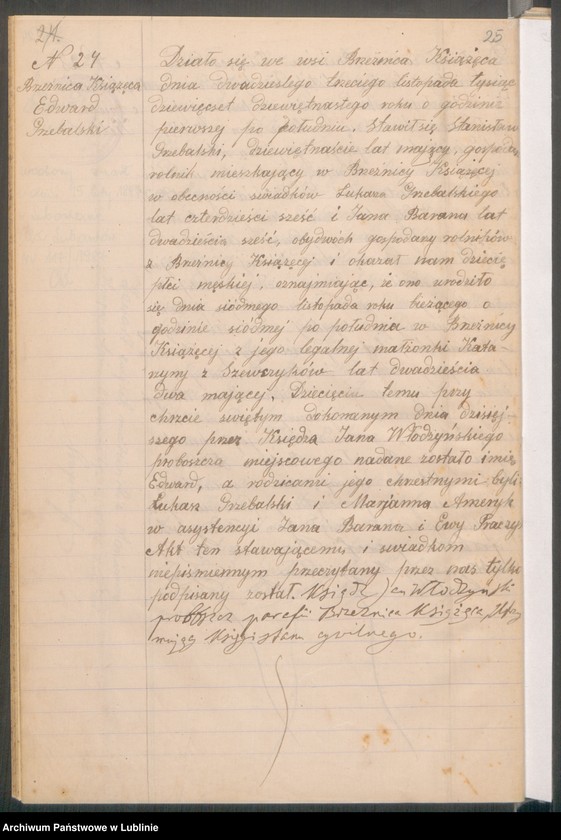 24. 25
N 24
Brzeźnica Książęca
Edward
Grzebalski
Działo się we wsi Brzeźnica Książęca
dnia dwadziestego trzeciego listopada tysiąc
dziewięcset dziewiętnastego roku o godzinie
pierwszej po południu. Stawił się Stanisław
Grzebalski, dziewiętnaście lat mający, gospodarz
rolnik mieszkający w Brzeźnicy Książęcej
w obecności świadków Łukasza Grzebalskiego
lat czterdzieści sześć i Jana Barana lat
dwadzieścia sześć, obydwóch gospodarzy rolników
z Brzeźnicy Książęcej i okazał nam dziecię
płci męskiej, oznajmiając, że ono urodziło
się dnia siódmego listopada roku bieżącego o
godzinie siódmej po południu w Brzeźnicy
Książęcej z jego legalnej małżonki Kata-
rzyny z Szewczyków lat dwadzieścia
dwa mającej. Dziecięciu temu przy
chrzcie świętym dokonanym dnia dzisiej-
szego przez Księdza Jana Włodzyńskiego
proboszcza miejscowego nadane zostało imię
Edward, a rodzicami jego chrestnymi byli:
Łukasz Grzebalski i Marjanna Ameryk
w asystencyi Jana Barana i Ewy
Akt ten stawającemu i świadkom
niepiśmiennym przeczytany przez nas tylko
podpisany został. Ksiądz Jan Włodzyński
proboszcz parafii Brzeźnica Książęca
Księgi stanu cywilnego.
Archiwum Państwowe w Lublinie